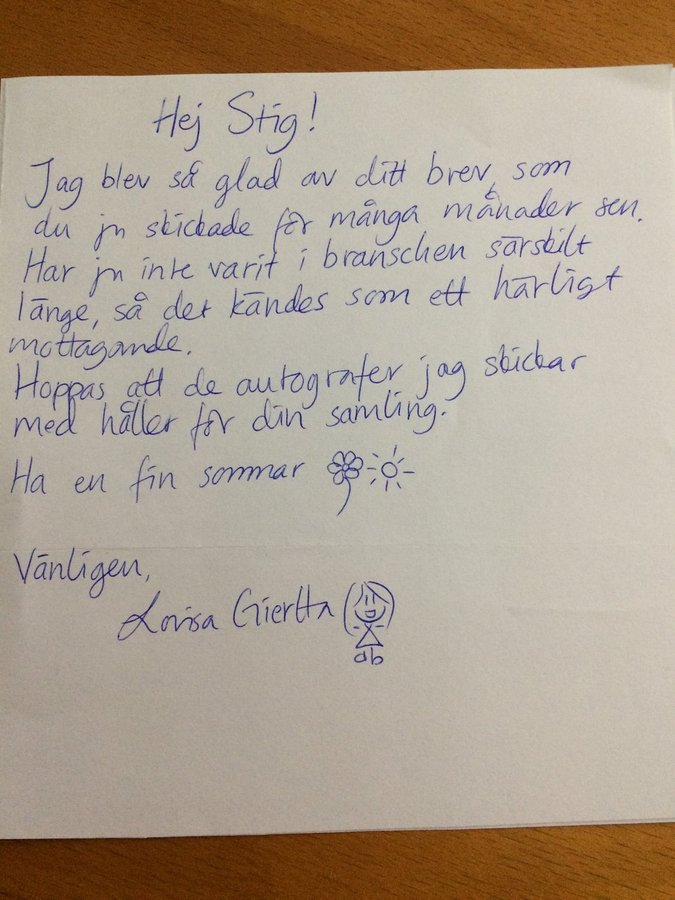 Hej Stig!
Jag blev så glad av ditt brev, som
du ju skickade för många månader sen.
Har ju inte varit i branschen särskilt
länge, så det kändes som ett härligt
mottagande.
Hoppas att de autografer jag skickar
med håller för din samling.
Ha en fin sommar
Vänligen,
Lovisa Giertta